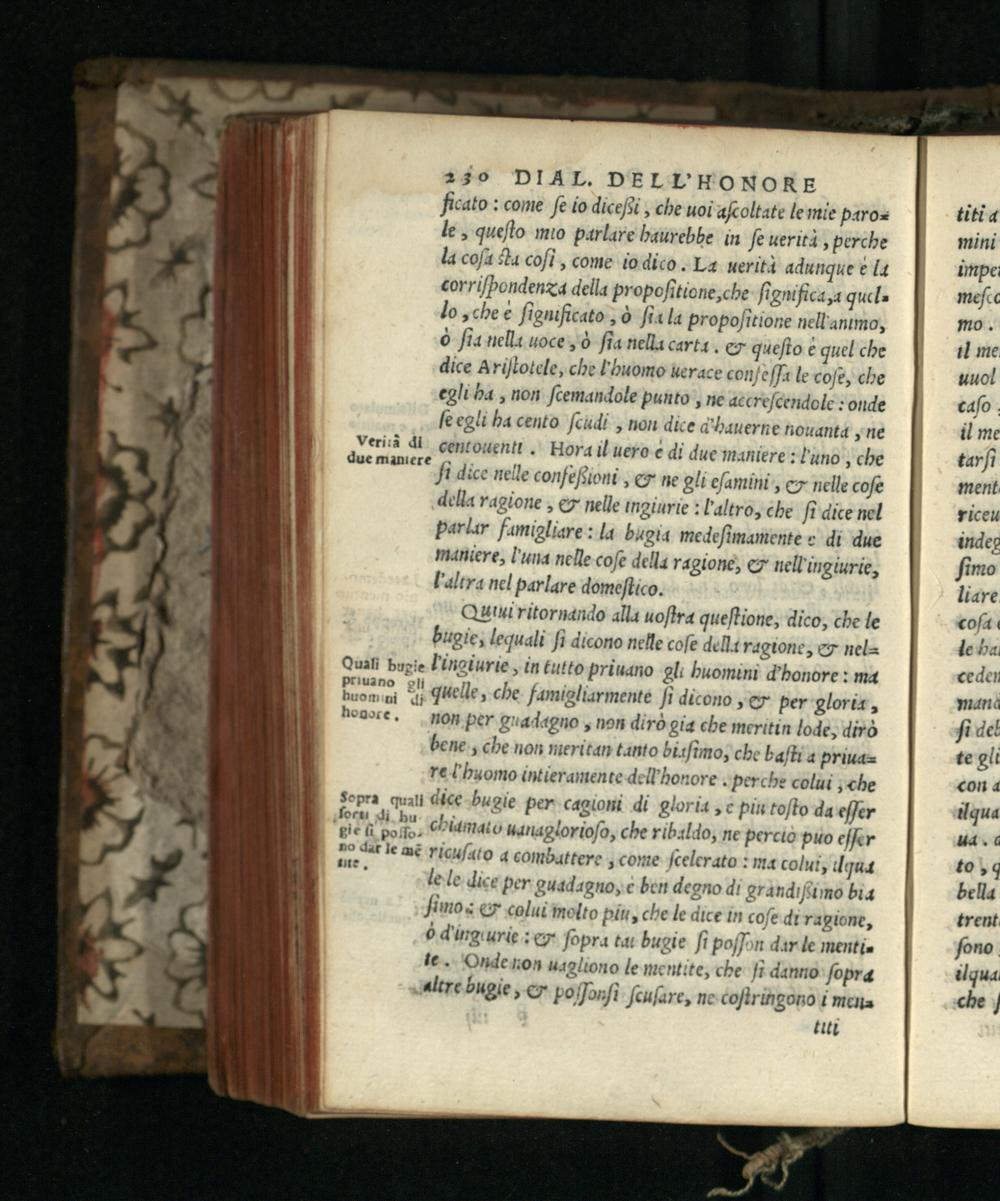 230 DIAL. DELL'HONORE
ficato : come se io dicessi , che uoi ascoltate le mie paro=
le , questo mio parlare haurebbe in se uerità , perche
la cosa sta cosi , come io dico . La uerità adunque è la
corrispondenza della propositione,che significa,a quel=
lo , che è significato , ò sia la propositione nell'animo,
ò sia nella uoce , ò sia nella carta . & questo è quel che
dice Aristotele, che l'huomo uerace confessa le cose, che
egli ha , non scemandole punto , ne accrescendole : onde
se egli ha cento scudi , non dice d'hauerne nouanta , ne
centouenti . Hora il uero è di due maniere : l'uno , che
si dice nelle confessioni , & ne gli esamini , & nelle cose
della ragione , & nelle ingiurie : l'altro, che si dice nel
parlar famigliare : la bugia medesimamente e di due
maniere, l'una nelle cose della ragione, & nell'ingiurie,
l'altra nel parlare domestico.
Quiui ritornando alla uostra questione, dico, che le
bugie, lequali si dicono nelle cose della ragione, & nel=
l'ingiurie , in tutto priuano gli huomini d'honore : ma
quelle, che famigliarmente si dicono , & per gloria ,
non per guadagno , non dirò gia che meritin lode, dirò
bene , che non meritan tanto biasimo, che basti a priua=
re l'huomo intieramente dell'honore . perche colui , che
dice bugie per cagioni di gloria , e piu tosto da esser
chiamato uanaglorioso, che ribaldo, ne perciò puo esser
ricusato a combattere , come scelerato : ma colui, ilqua
le le dice per guadagno, è ben degno di grandissimo bia
simo : & colui molto piu, che le dice in cose di ragione,
ò d'ingiurie : & sopra tai bugie si posson dar le menti=
te . Onde non uagliono le mentite, che si danno sopra
altre bugie , & possonsi scusare, ne costringono i men=
titi
Verità di
due maniere
Quali bugie
priuano gli
huomini di
honore .
Sopra quali
sorti di bu
gie si posso-
no dar le mē
tite .
titi a
mini
impe
mesco
mo .
il me
uuol
caso ,
il me
tarsi
ment
riceu
indeg
simo
liare
cosa
le ha
ceden
mand
si deb
te gli
con a
ilqua
ua .
to , q
bella
trent
sono
ilqua
che